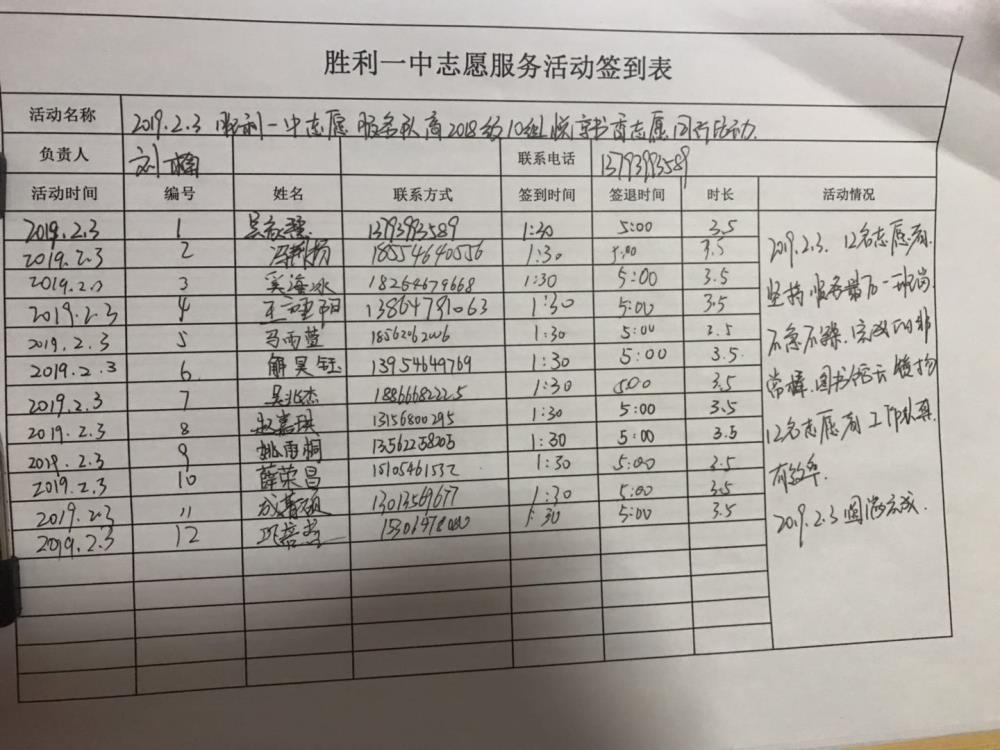 胜利一中志愿服务活动签到表
活动名称 2019.2.3 胜利一中志愿服务队高2018级10组悦享书香志愿同行活动.
负责人 刘楠 联系电话 13793993589
活动时间 编号 姓名 联系方式 签到时间 签退时间 时长 活动情况
2019.2.3 1 13793993589 1:30 5:00 3.5
2019.2.3 2 18554640556 1:30 5:00 3.5
2019.2.3 3 奚海冰 18264679668 1:30 5:00 3.5
2019.2.3 4 13864731063 1:30 5:00 3.5
2019.2.3 5 马雨萱 18562062006 1:30 5:00 3.5
2019.2.3 6 解昊钰 13954649769 1:30 5:00 3.5
2019.2.3 7 吴兆杰 18866682225 1:30 5:00 3.5
2019.2.3 8 赵嘉琪 13156800295 1:30 5:00 3.5
2019.2.3 9 姚雨桐 13562258205 1:30 5:00 3.5
2019.2.3 10 薛荣昌 15105461532 1:30 5:00 3.5
2019.2.3 11 13013569677 1:30 5:00 3.5
2019.2.3 12 1:30 5:00 3.5
2019.2.3. 12名志愿者.
坚持服务最后一班岗
不急不躁.完成的非
常棒.图书馆
12名志愿者工作认真
有效率.
2019.2.3 圆满完成.